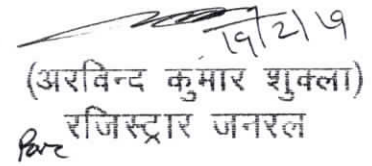 19/2/19
(अरविन्द कुमार शुक्ला)
रजिस्ट्रार जनरल